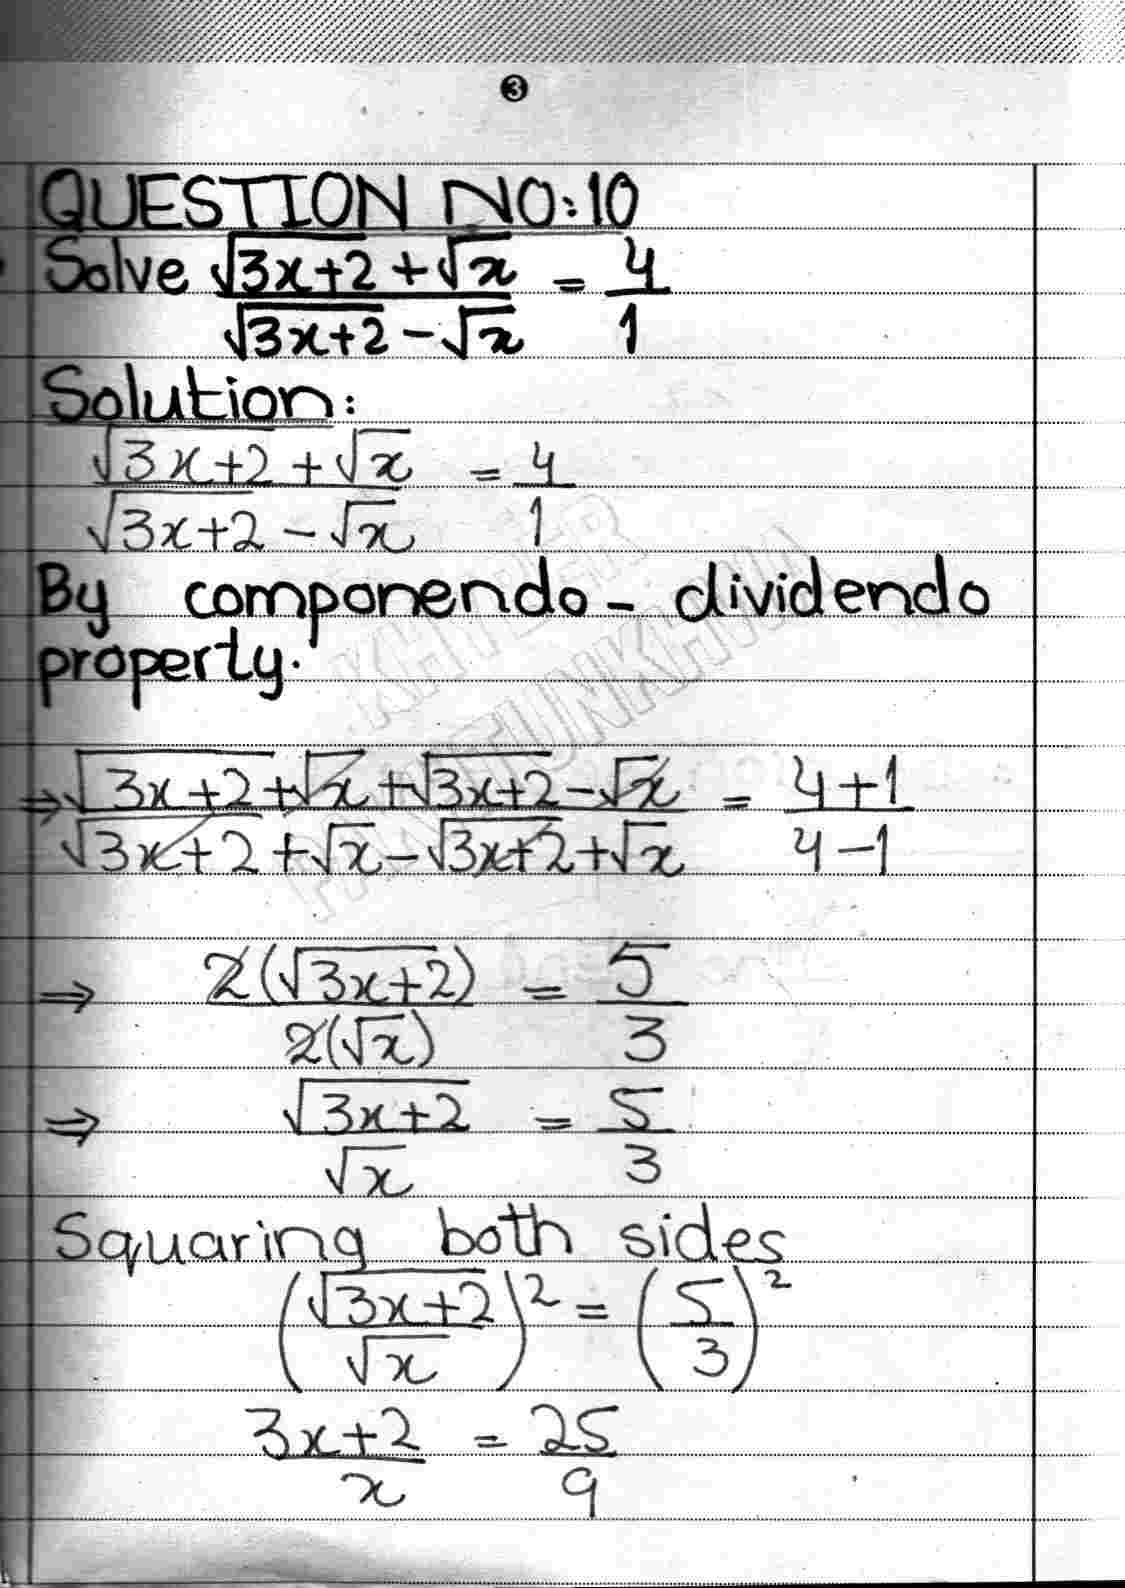 3
QUESTION NO:10
Solve √(3x+2) + √x / √(3x+2) - √x = 4/1
Solution:
√(3x+2) + √x / √(3x+2) - √x = 4/1
By componendo - dividendo
property.
⇒ √(3x+2) + √x + √(3x+2) - √x / √(3x+2) + √x - √(3x+2) + √x = 4+1 / 4-1
⇒ 2(√(3x+2)) / 2(√x) = 5/3
⇒ √(3x+2) / √x = 5/3
Squaring both sides
(√(3x+2) / √x)² = (5/3)²
3x+2 / x = 25/9
KHYBER
PAKHTUNKHWA